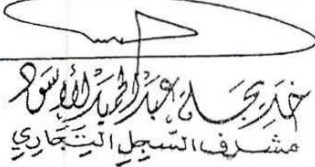 خديجة عبد الحميد الأسود
مشرف السجل التجاري